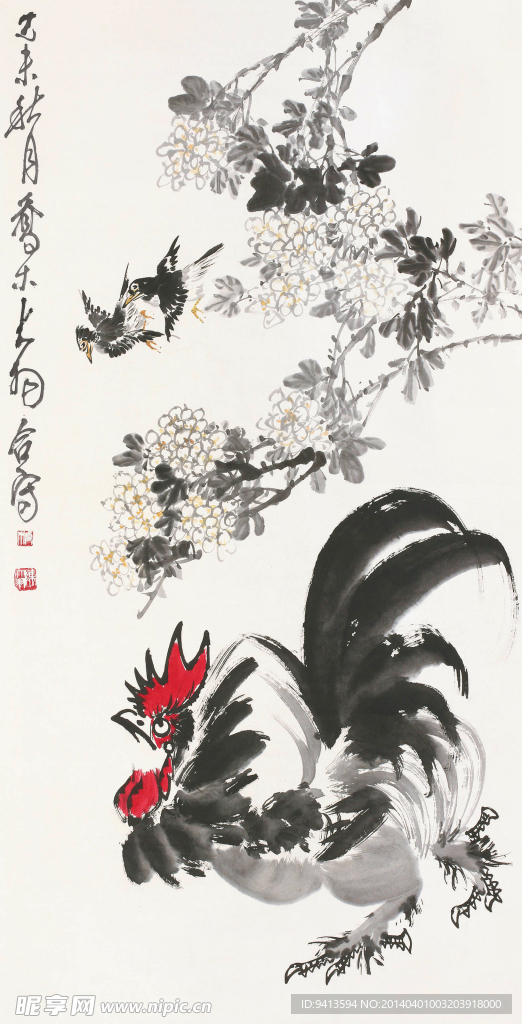 己未秋月喬木大羽合寫
昵享网 www.nipic.cn
ID:9413594 NO:20140401003203918000